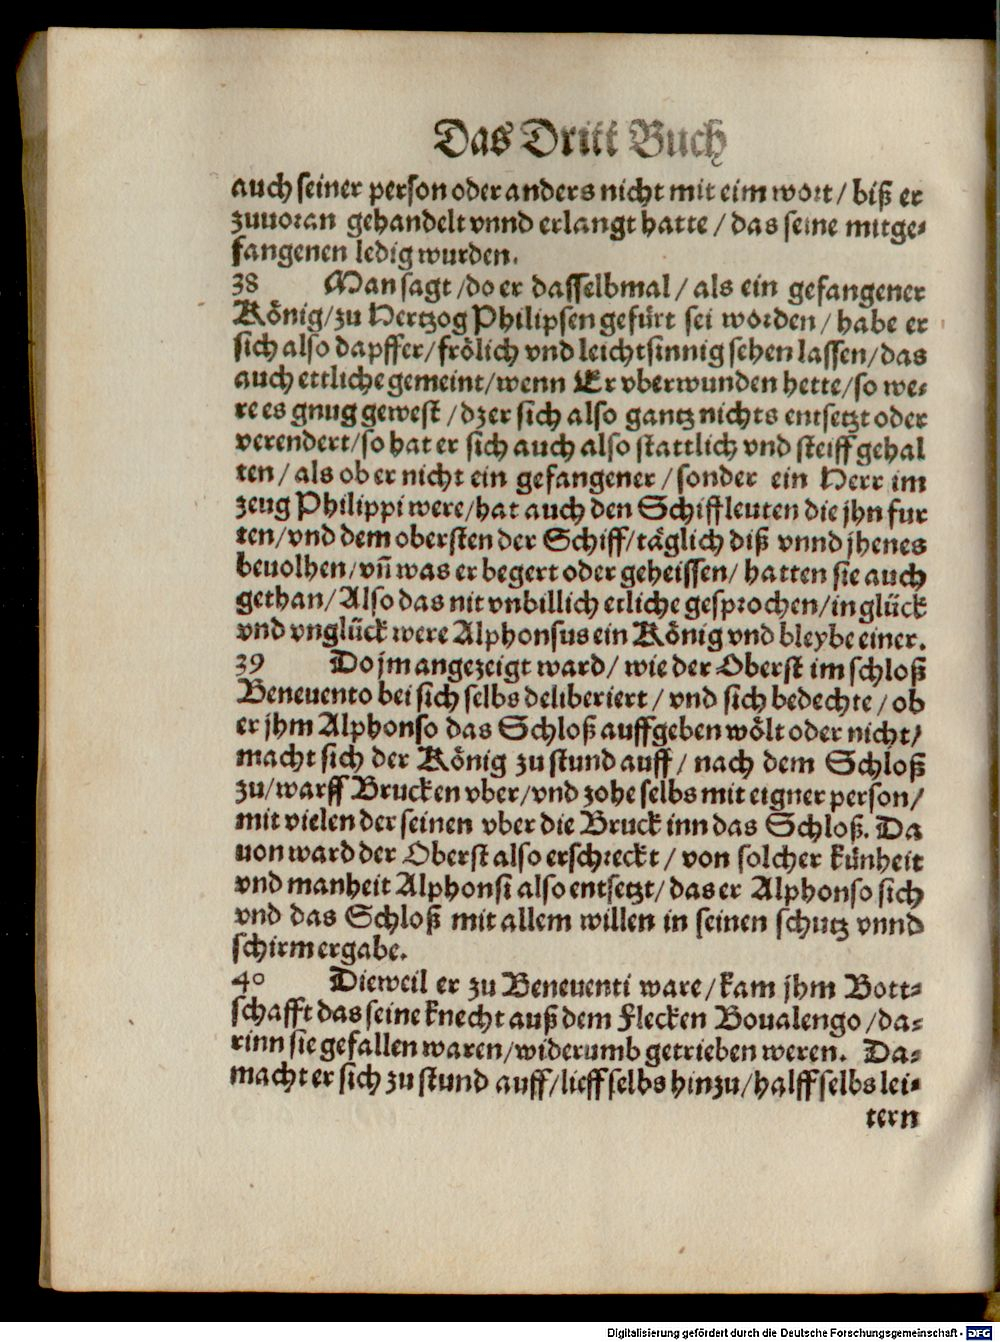 Das Dritt Buch
auch seiner person oder anders nicht mit eim wort / biß er
zuuoran gehandelt vnnd erlangt hatte / das seine mitge-
fangenen ledig wurden.
38 Man sagt / do er dasselbmal / als ein gefangener
König / zu Hertzog Philipsen gefürt sei worden / habe er
sich also dapffer / frölich vnd leichtsinnig sehen lassen / das
auch ettliche gemeint / wenn Er vberwunden hette / so we-
re es gnug gewest / dz er sich also gantz nichts entsetzt oder
verendert / so hat er sich auch also stattlich vnd steiff gehal
ten / als ob er nicht ein gefangener / sonder ein Herr im
zeug Philippi were / hat auch den Schiffleuten die jhn fur
ten / vnd dem obersten der Schiff / täglich diß vnnd jhenes
beuolhen / vñ was er begert oder geheissen / hatten sie auch
gethan / Also das nit vnbillich etliche gesprochen / in glück
vnd vnglück were Alphonsus ein König vnd bleybe einer.
39 Do jm angezeigt ward / wie der Oberst im schloß
Beneuento bei sich selbs deliberiert / vnd sich bedechte / ob
er jhm Alphonso das Schloß auffgeben wölt oder nicht /
macht sich der König zu stund auff / nach dem Schloß
zu / warff Brucken vber / vnd zohe selbs mit eigner person /
mit vielen der seinen vber die Bruck inn das Schloß. Da
uon ward der Oberst also erschreckt / von solcher künheit
vnd manheit Alphonsi also entsetzt / das er Alphonso sich
vnd das Schloß mit allem willen in seinen schutz vnnd
schirm ergabe.
40 Dieweil er zu Beneuenti ware / kam jhm Bott-
schafft das seine knecht auß dem flecken Boualengo / da-
rinn sie gefallen waren / widerumb getrieben weren. Da-
macht er sich zu stund auff / lieff selbs hinzu / halff selbs lei-
tern
Digitalisierung gefördert durch die Deutsche Forschungsgemeinschaft - DFG